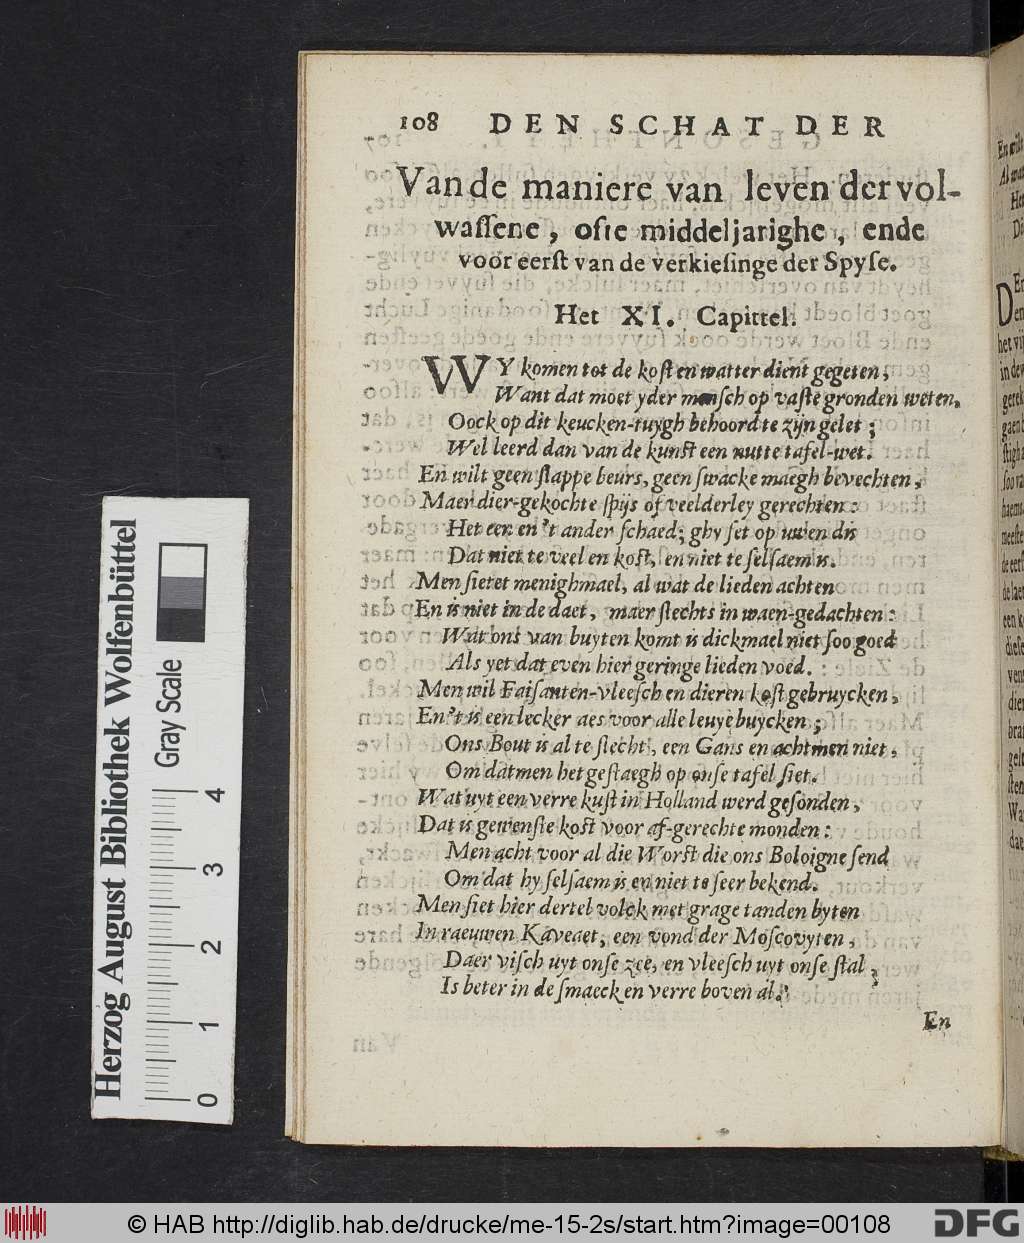 108 DEN SCHAT DER
Van de maniere van leven der vol-
wassene, ofte middeljarighe, ende
voor eerst van de verkiesinge der Spyse.
Het XI. Capittel.
WY komen tot de kost en watter dient gegeten,
Want dat moet yder mensch op vaste gronden weten.
Oock op dit keucken-tuygh behoord te zijn gelet;
Wel leerd dan van de kunst een nutte tafel-wet.
En wilt geen slappe beurs, geen swacke maegh bevechten,
Maer dier-gekochte spijs of veelderley gerechten:
Het een en 't ander schaed; ghy set op uwen dis
Dat niet te veel en kost, en niet te selsaem is.
Men siet et menighmael, al wat de lieden achten
En is niet in de daet, maer slechts in waen-gedachten:
Wat ons van buyten komt is dickmael niet soo goed
Als yet dat even hier geringe lieden voed.
Men wil Faisanten-vleesch en dieren kost gebruycken,
En 't is een lecker aes voor alle leuye buycken;
Ons Bout is al te slecht, een Gans en acht men niet,
Om datmen het gestaegh op onse tafel siet.
Wat uyt een verre kust in Holland werd gesonden,
Dat is gewenste kost voor af-gerechte monden:
Men acht voor al die Worst die ons Boloigne send
Om dat hy selsaem is en niet te seer bekend.
Men siet hier dertel volck met grage tanden byten
In raeuwen Kaveaet, een vond der Moscovyten,
Daer visch uyt onse zee, en vleesch uyt onse stal,
Is beter in de smaeck en verre boven al.
En
Herzog August Bibliothek Wolfenbüttel
Gray Scale
0 1 2 3 4
© HAB http://diglib.hab.de/drucke/me-15-2s/start.htm?image=00108
DFG